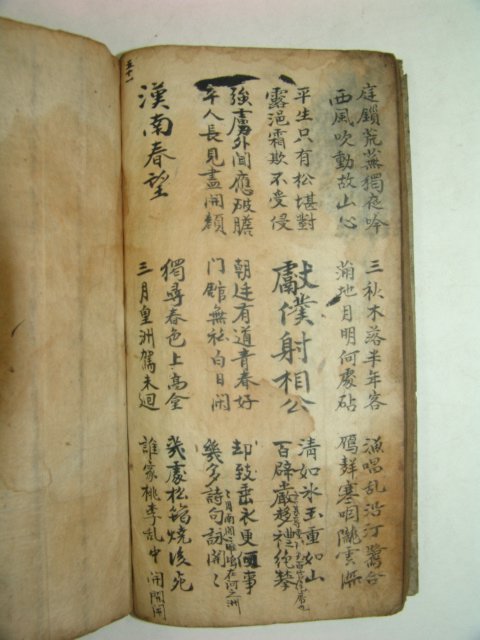 五十一
庭鎖荒蕪獨夜吟
西風吹動故山心
三秋木落半年客
滿地月明何處砧
漁唱乱沿汀鷺合
鴈群塞咽隴雲深
平生只有松堪對
露浥霜欺不受侵
獻僕射相公
清如氷玉重如山
百辟嚴趍禮絶攀
強虜外聞應破膽
平人長見盡開顔
朝廷有道青春好
門館無私白日閑
却致垂衣更何事
幾多詩句詠開〻
在河之洲
漢南春望
獨尋春色上高臺
三月皇洲駕未廻
幾處松筠燒後死
誰家桃李乱中開